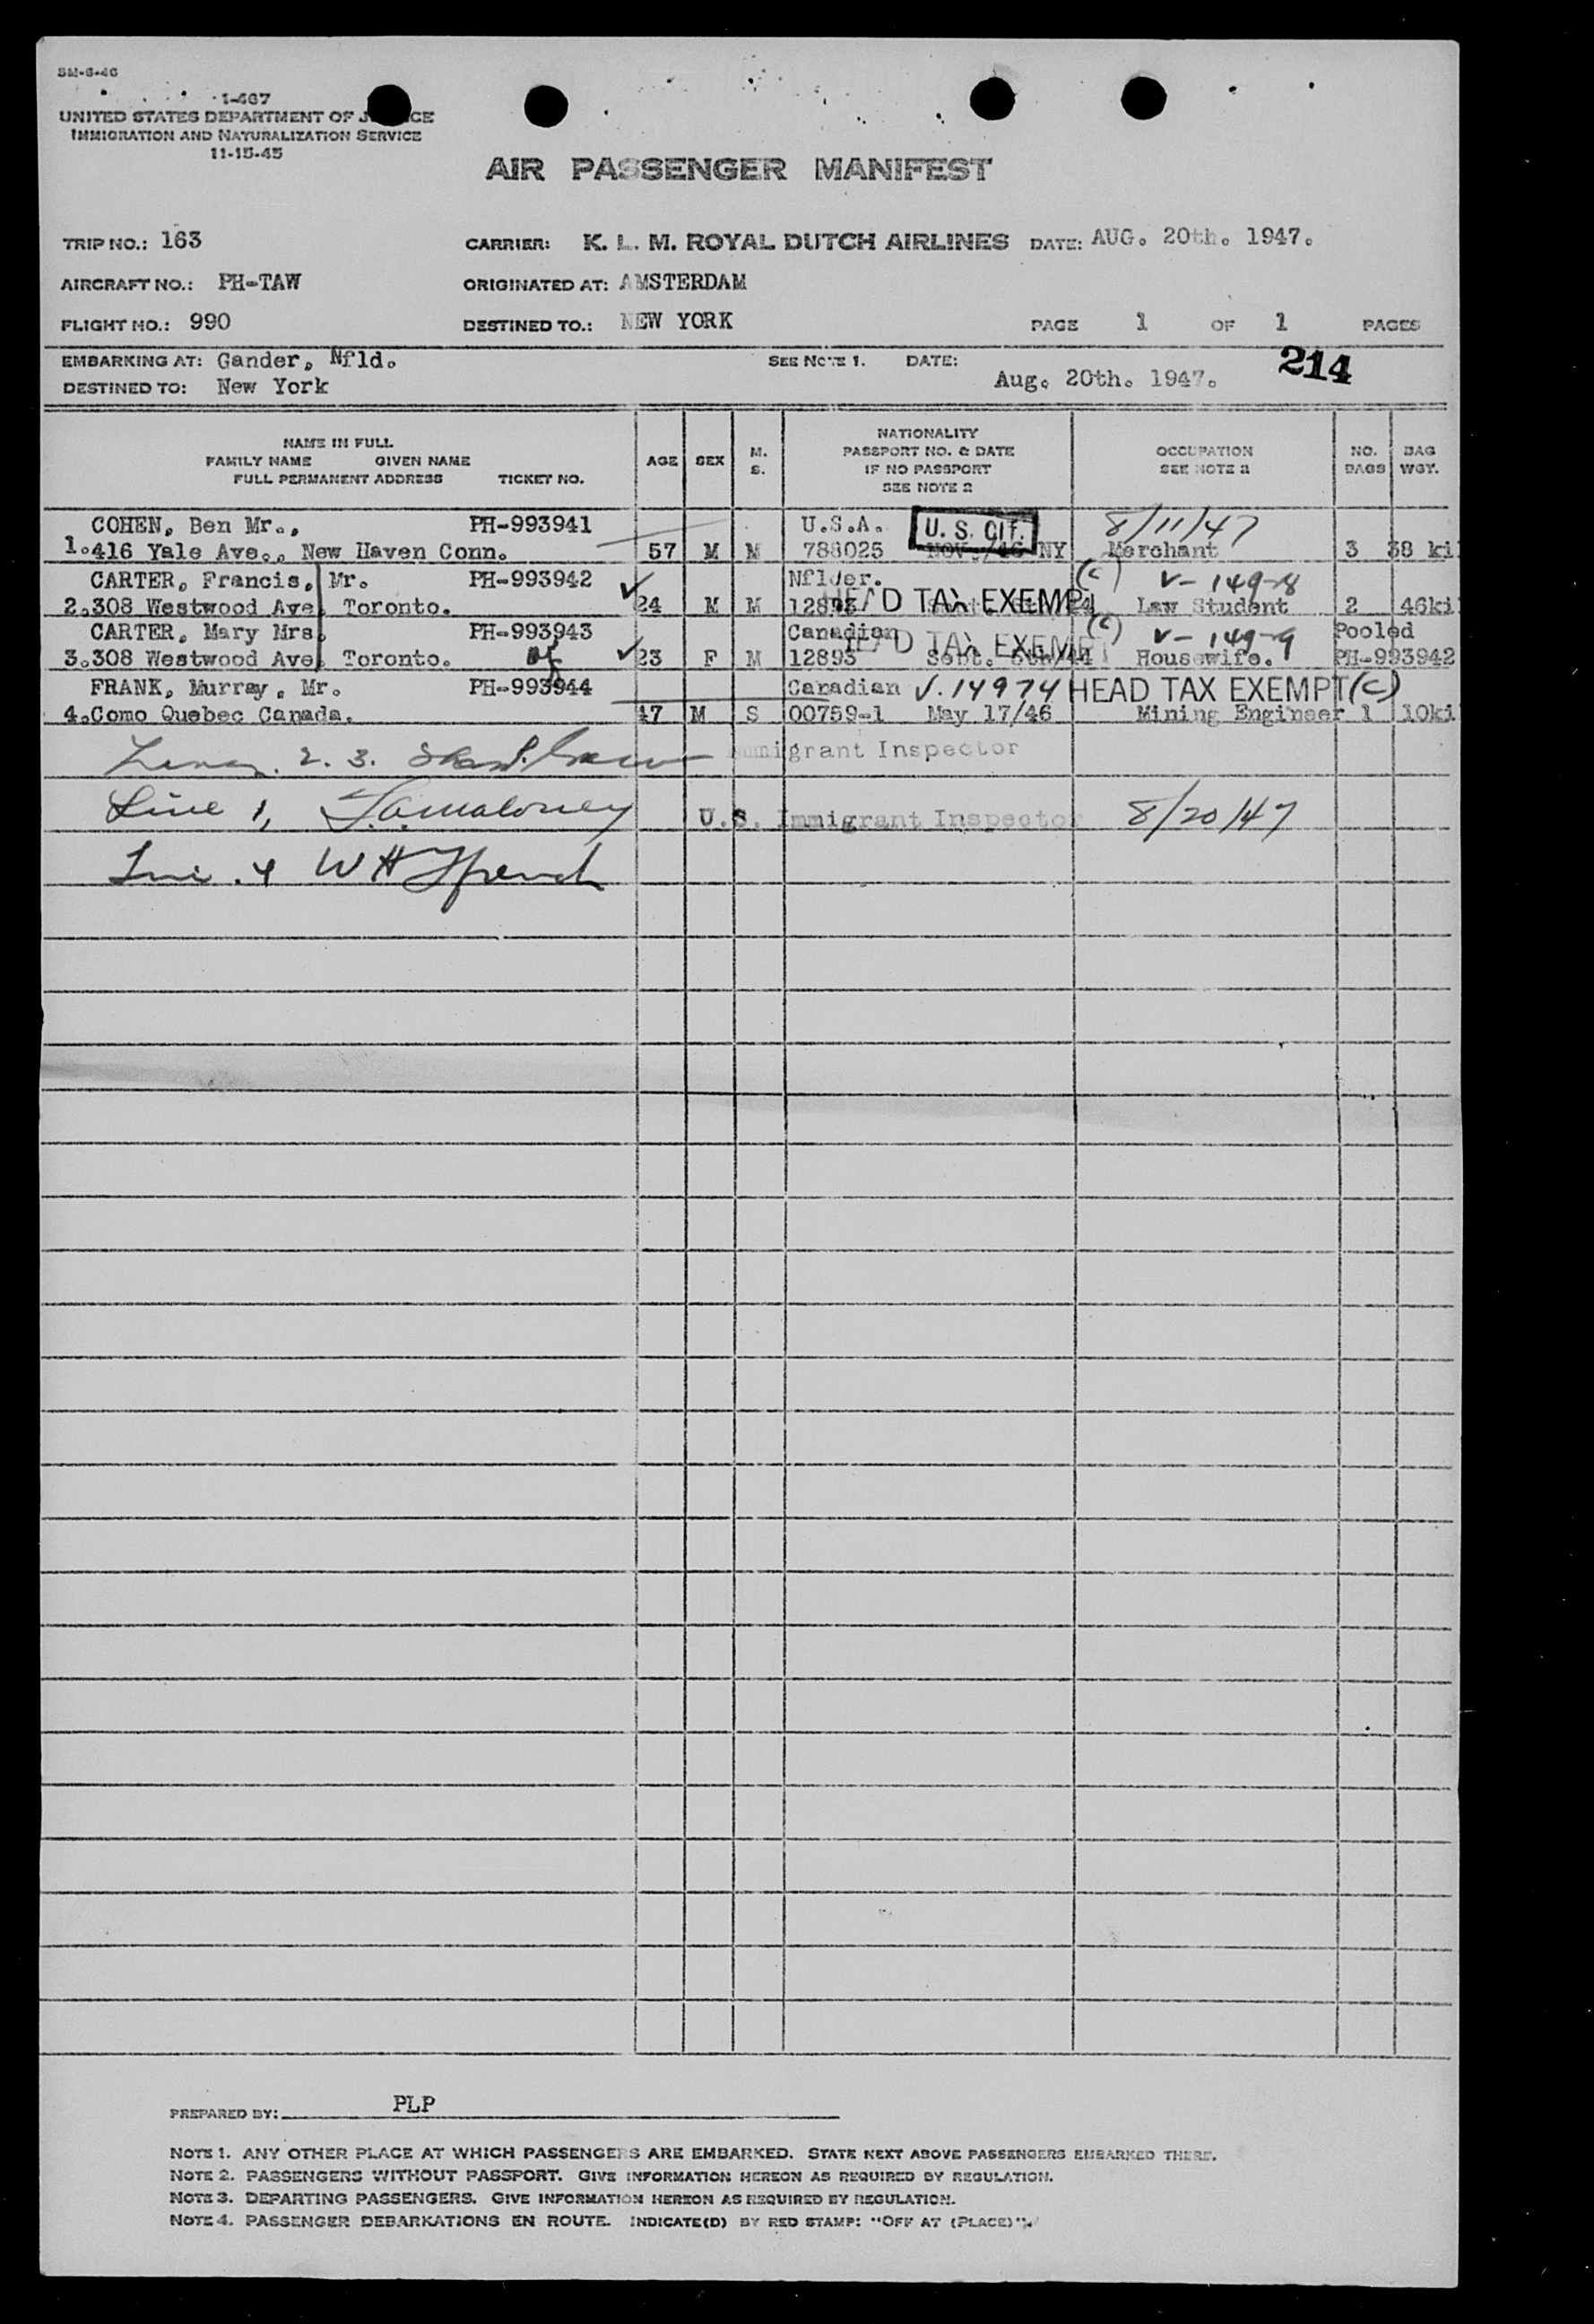 SM-6-46
I-467
UNITED STATES DEPARTMENT OF J CE
IMMIGRATION AND NATURALIZATION SERVICE
11-15-45
AIR PASSENGER MANIFEST
TRIP NO.: 163 CARRIER: K. L. M. ROYAL DUTCH AIRLINES DATE: AUG. 20th. 1947.
AIRCRAFT NO.: PH-TAW ORIGINATED AT: AMSTERDAM
FLIGHT NO.: 990 DESTINED TO.: NEW YORK PAGE 1 OF 1 PAGES
EMBARKING AT: Gander, Nfld. SEE NOTE 1. DATE: Aug. 20th. 1947. 214
DESTINED TO: New York
NAME IN FULL
FAMILY NAME GIVEN NAME
FULL PERMANENT ADDRESS TICKET NO.
AGE SEX M. S.
NATIONALITY
PASSPORT NO. & DATE
IF NO PASSPORT
SEE NOTE 2
OCCUPATION
SEE NOTE 2
NO. BAGS
BAG WGT.
COHEN, Ben Mr., PH-993941 U.S.A. U. S. CIT. 8/11/47
1.416 Yale Ave., New Haven Conn. 57 M M 788025 Nov. /46 NY Merchant 3 38 ki
CARTER, Francis, Mr. PH-993942 Nflder. (c) v-149-8
2.308 Westwood Ave. Toronto. 24 M M HEAD TAX EXEMPT Law Student 2 46ki
CARTER, Mary Mrs. PH-993943 Canadian HEAD TAX EXEMPT (c) v-149-9 Pooled
3.308 Westwood Ave. Toronto. 23 F M 12893 Sept. Housewife. PH-993942
FRANK, Murray, Mr. PH-993944 Canadian V.14974 HEAD TAX EXEMPT (c)
4.Como Quebec Canada. 47 M S 00759-1 May 17/46 Mining Engineer 1 10ki
2. 3. Immigrant Inspector
Line 1, Maloney U.S. Immigrant Inspector 8/20/47
Line 4 W H
PREPARED BY: PLP
NOTE 1. ANY OTHER PLACE AT WHICH PASSENGERS ARE EMBARKED. STATE NEXT ABOVE PASSENGERS EMBARKED THERE.
NOTE 2. PASSENGERS WITHOUT PASSPORT. GIVE INFORMATION HEREON AS REQUIRED BY REGULATION.
NOTE 3. DEPARTING PASSENGERS. GIVE INFORMATION HEREON AS REQUIRED BY REGULATION.
NOTE 4. PASSENGER DEBARKATIONS EN ROUTE. INDICATE(D) BY RED STAMP: "OFF AT (PLACE)".